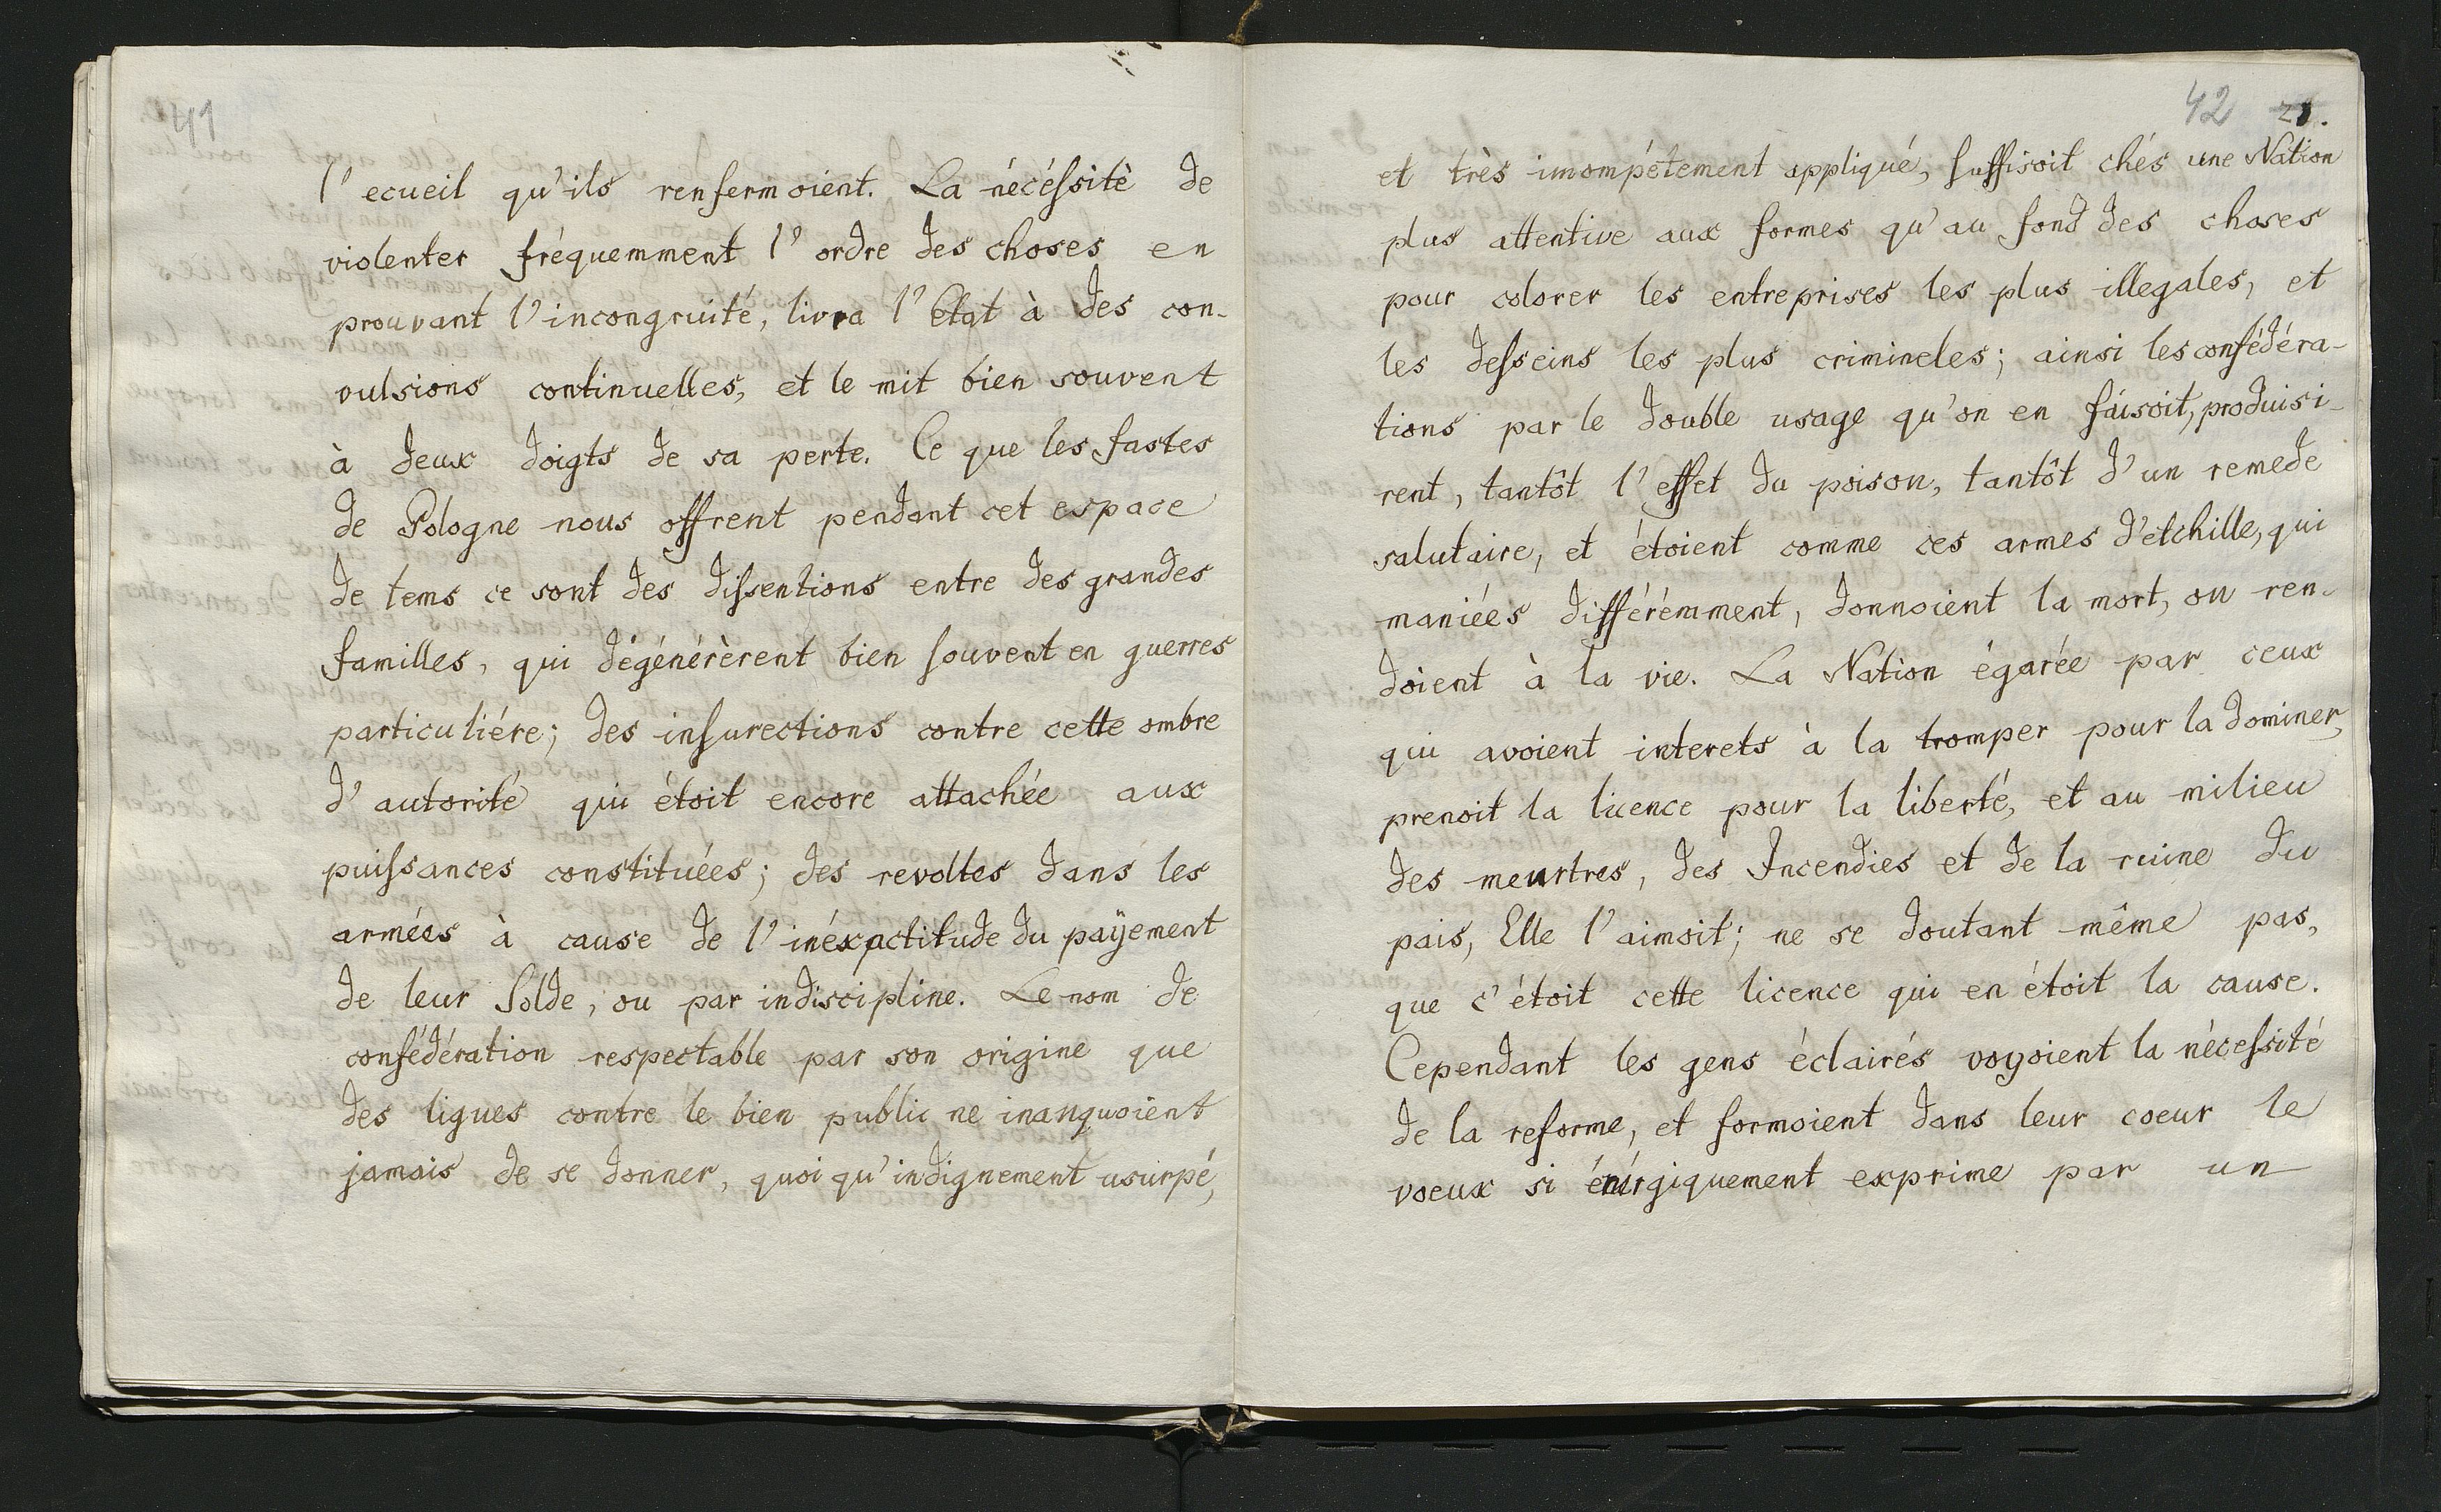 41
l'ecueil qu'ils renfermoient. La nécéssitè de
violenter fréquemment l'ordre des choses en
prouvant l'incongruité, livra l'Etat à des con-
vulsions continuelles, et le mit bien souvent
à deux doigts de sa perte. Ce que les fastes
de Pologne nous offrent pendant cet espace
de tems ce sont des dissentions entre des grandes
familles, qui dégénérèrent bien souvent en guerres
particuliére; des insurections contre cette ombre
d'autorité qui étoit encore attachée aux
puissances constituées; des revoltes dans les
armées à cause de l'inéxactitude du payement
de leur Solde, ou par indiscipline. Le nom de
confédération respectable par son origine que
des ligues contre le bien public ne manquoient
jamais de se donner, quoi qu'indignement usurpé,
42 21.
et très imompétement appliqué, suffisoit chés une Nation
plus attentive aux formes qu'au fond des choses
pour colorer les entreprises les plus illegales, et
les desseins les plus crimineles; ainsi les confédéra-
tions par le double usage qu'on en faisoit, produisi-
rent, tantôt l'effet du poison, tantôt d'un remede
salutaire, et étoient comme ces armes d'etchille, qui
maniées différémment, donnoient la mort, ou ren-
doient à la vie. La Nation égarée par ceux
qui avoient interets à la tromper pour la dominer,
prenoit la licence pour la liberté, et au milieu
des meurtres, des Incendies et de la ruine du
pais, Elle l'aimoit; ne se doutant même pas,
que c'étoit cette licence qui en étoit la cause.
Cependant les gens éclairés voyoient la nécessité
de la reforme, et formoient dans leur coeur le
voeux si énérgiquement exprime par un